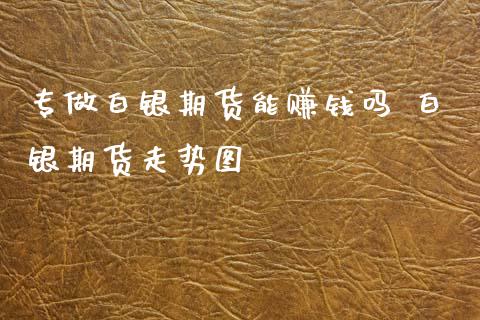 专做白银期货能赚钱吗 白
银期货走势图